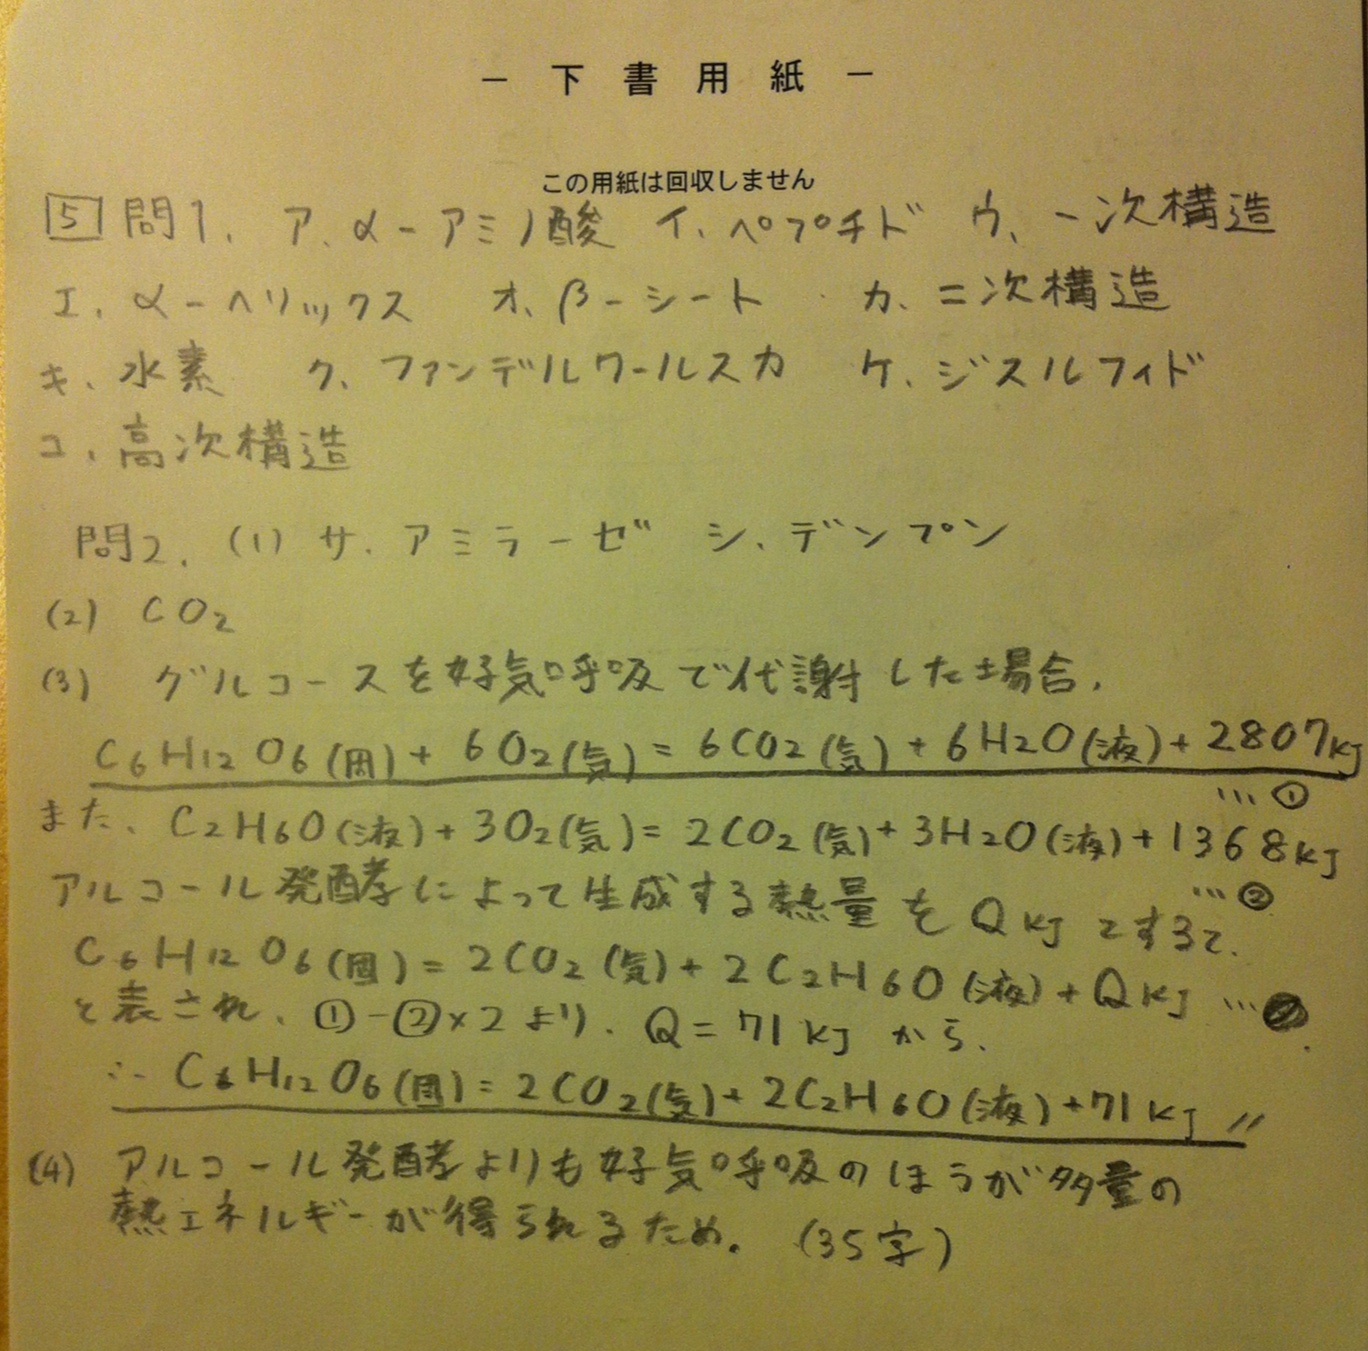 － 下書用紙 －
この用紙は回収しません
5 問1、 ア、α－アミノ酸 イ、ペプチド ウ、一次構造
エ、α－ヘリックス オ、β－シート カ、二次構造
キ、水素 ク、ファンデルワールスカ ケ、ジスルフィド
コ、高次構造
問2、(1) サ、アミラーゼ シ、デンプン
(2) CO2
(3) グルコースを好気呼吸で代謝した場合、
C6H12O6(固) + 6O2(気) = 6CO2(気) + 6H2O(液) + 2807kJ
…①
また、C2H6O(液) + 3O2(気) = 2CO2(気) + 3H2O(液) + 1368kJ
…②
アルコール発酵によって生成する熱量をQkJとすると、
C6H12O6(固) = 2CO2(気) + 2C2H6O(液) + QkJ …
と表され、①－②×2より、Q = 71kJから、
∴ C6H12O6(固) = 2CO2(気) + 2C2H6O(液) + 71kJ //
(4) アルコール発酵よりも好気呼吸のほうが多量の
熱エネルギーが得られるため。(35字)